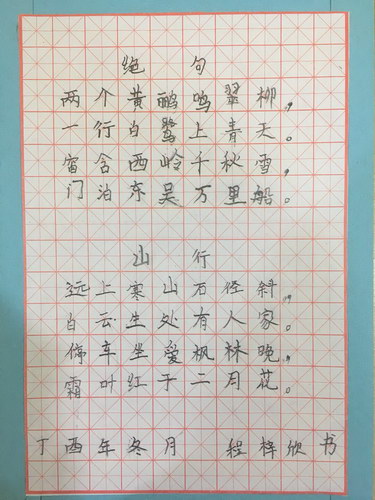 绝句
两个黄鹂鸣翠柳，
一行白鹭上青天。
窗含西岭千秋雪，
门泊东吴万里船。
山行
远上寒山石径斜，
白云生处有人家。
停车坐爱枫林晚，
霜叶红于二月花。
丁酉年冬月 程梓欣书